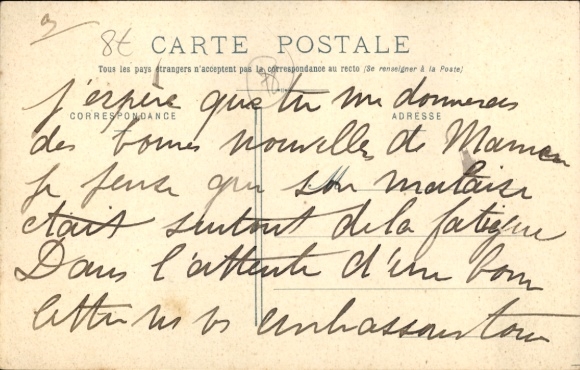 8t
CARTE POSTALE
Tous les pays étrangers n'acceptent pas la correspondance au recto (Se renseigner à la Poste)
CORRESPONDANCE
ADRESSE
J'espère que tu me donneras
des bonnes nouvelles de Maman
je pense que son malaise
était surtout de la fatigue
Dans l'attente d'une bonne
lettre ns vs embrassons tous